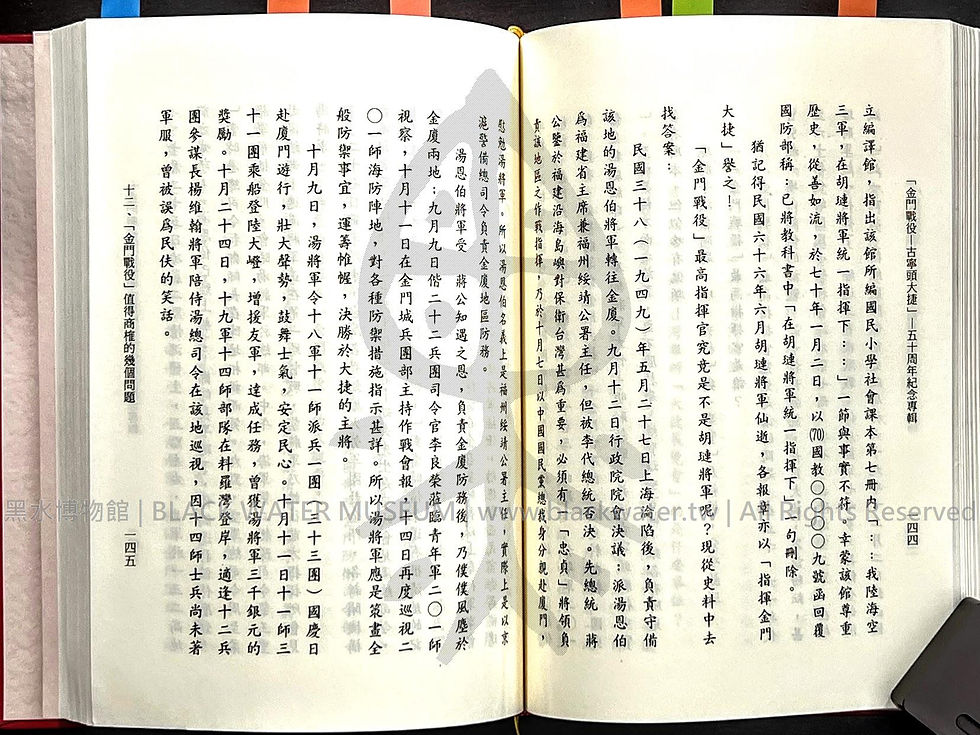 「金門戰役—古寧頭大捷」—五十周年紀念專輯
一四四
立編譯館，指出該館所編國民小學社會課本第七冊內「：：我陸海空
三軍，在胡璉將軍統一指揮下：：」一節與事實不符，幸蒙該館尊重
歷史，從善如流，於七十年一月二日，以(70)國教〇〇〇〇九號函回覆
國防部稱：已將教科書中「在胡璉將軍統一指揮下」一句刪除。
猶記得民國六十六年六月胡璉將軍仙逝，各報章亦以「指揮金門
大捷」譽之！
「金門戰役」最高指揮官究竟是不是胡璉將軍呢？現從史料中去
找答案：
民國三十八（一九四九）年五月二十七日上海淪陷後，負責守備
該地的湯恩伯將軍轉往金廈。九月十二日行政院院會決議：派湯恩伯
為福建省主席兼福州綏靖公署主任，但被李代總統否決。先總統　蔣
公鑒於福建沿海島嶼對保衛台灣甚為重要，必須有一「忠貞」將領負
責該地區之作戰指揮，乃於十月七日以中國國民黨總裁身分親赴廈門，
慰勉湯將軍。所以湯恩伯名義上是福州綏靖公署主任，實際上是以京
滬警備總司令負責金廈地區防務。
湯恩伯將軍受　蔣公知遇之恩，負責金廈防務後，乃僕僕風塵於
金廈兩地：九月九日偕二十二兵團司令官李良榮蒞臨青年軍二〇一師
視察，十月十一日在金門城兵團部主持作戰會報，十四日再度巡視二
〇一師海防陣地，對各種防禦措施指示甚詳。所以湯將軍應是策畫全
般防禦事宜，運籌帷幄，決勝於大捷的主將。
十月九日，湯將軍令十八軍十一師派兵一團（三十三團）國慶日
赴廈門遊行，壯大聲勢，鼓舞士氣，安定民心。十月十一日十一師三
十一團乘船登陸大嶝，增援友軍，達成任務，曾獲湯將軍三千銀元的
獎勵。十月二十四日，十九軍十四師部隊在料羅灣登岸，適逢十二兵
團參謀長楊維翰將軍陪侍湯總司令在該地巡視，因十四師士兵尚未著
軍服，曾被誤為民伕的笑話。
十二、「金門戰役」值得商榷的幾個問題
一四五
黑水博物館 | BLACK WATER MUSEUM | www.blackwater.tw | All Rights Reserved